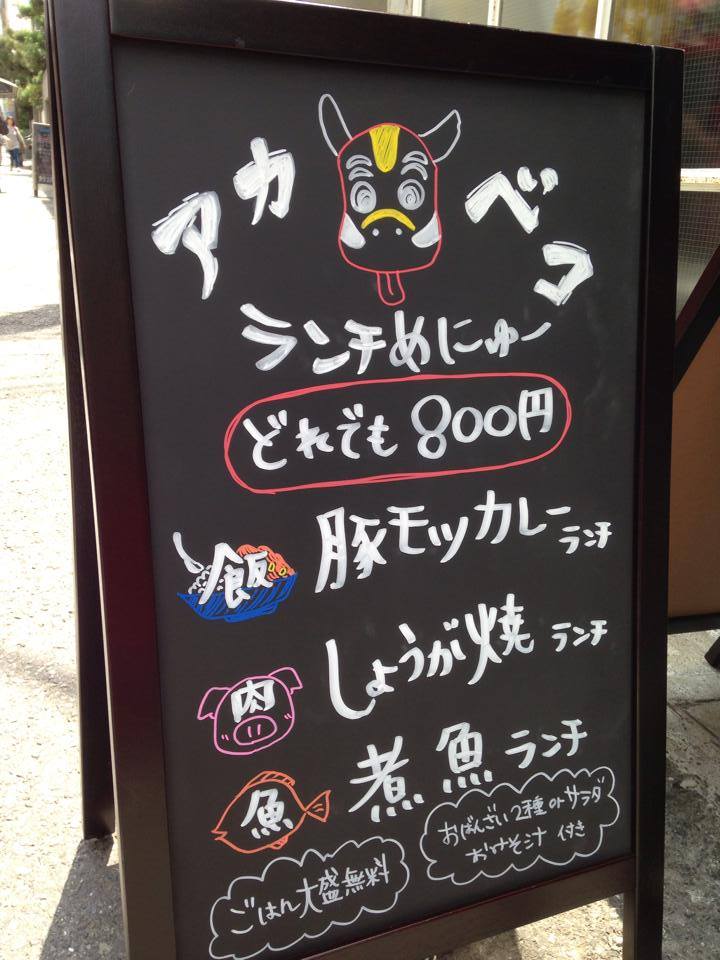 アカベコ
ランチめにゅー
どれでも 800円
飯 豚モツカレーランチ
肉 しょうが焼ランチ
魚 煮魚ランチ
おばんざい2種orサラダ
おみそ汁 付き
ごはん大盛無料